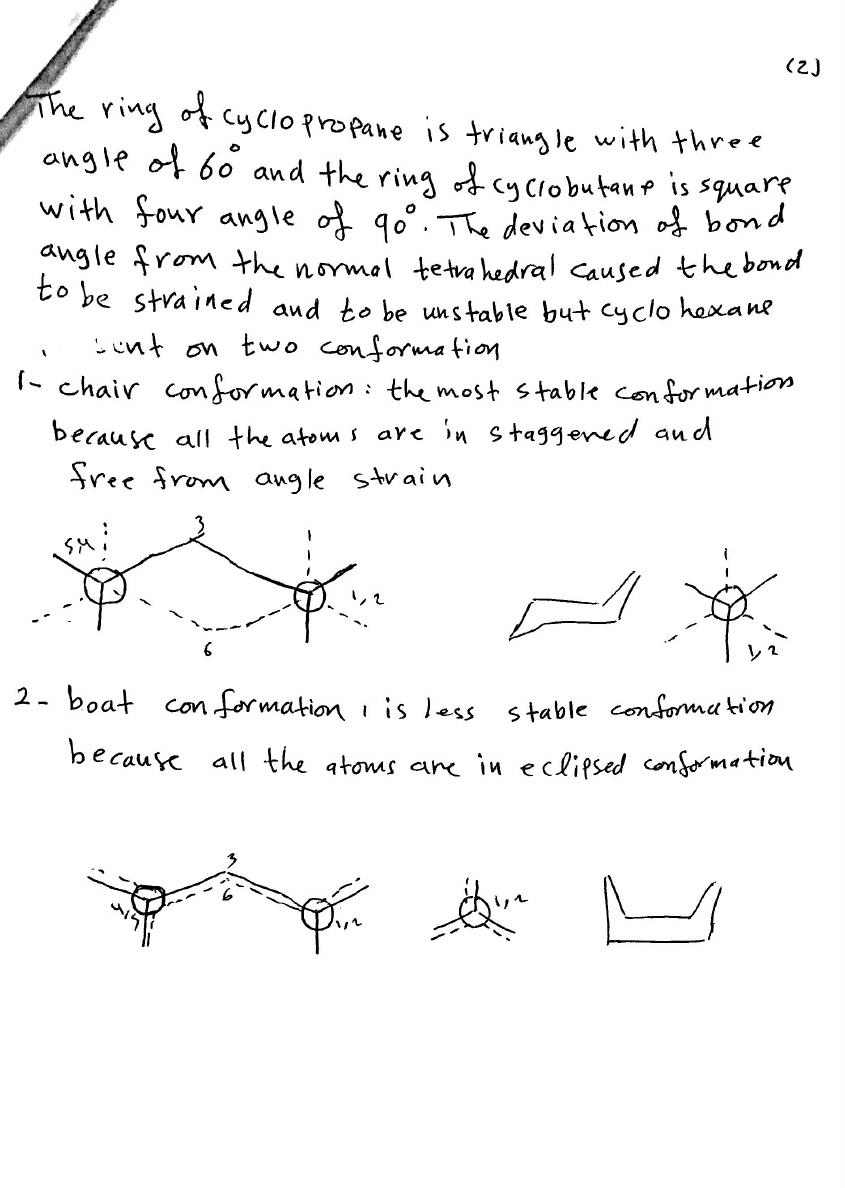 (2)
The ring of cyclopropane is triangle with three
angle of 60° and the ring of cyclobutane is square
with four angle of 90°. The deviation of bond
angle from the normal tetrahedral caused the bond
to be strained and to be unstable but cyclo hexane
on two conformation
1- chair conformation: the most stable conformation
because all the atoms are in staggered and
free from angle strain
3
1,2
6
1,2
2- boat conformation, is less stable conformation
because all the atoms are in eclipsed conformation
3
6
4,5
1,2
1,2